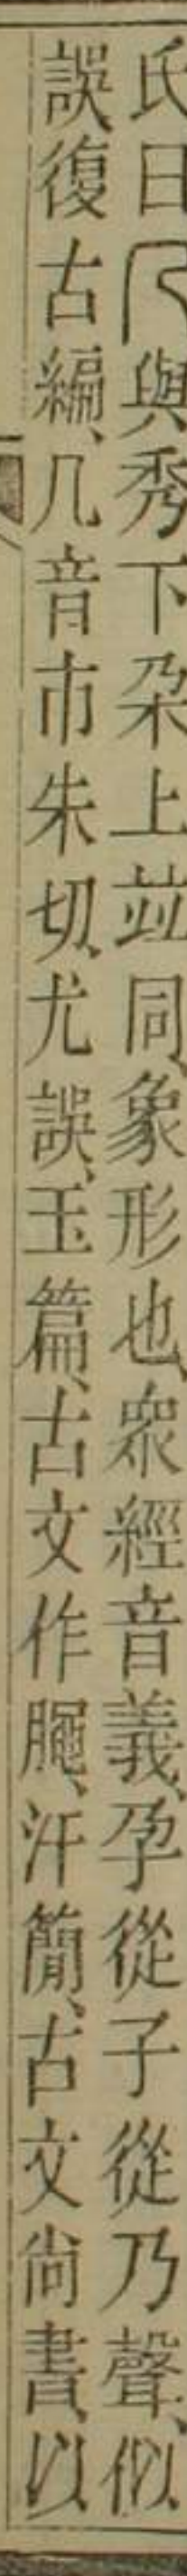 氏曰𠘧與秀下朶上竝同、象形也、衆經音義、孕從子從乃聲、似
誤復古編、几音市朱切、尤誤、玉篇、古文作䐾、汗簡、古文尚書、以